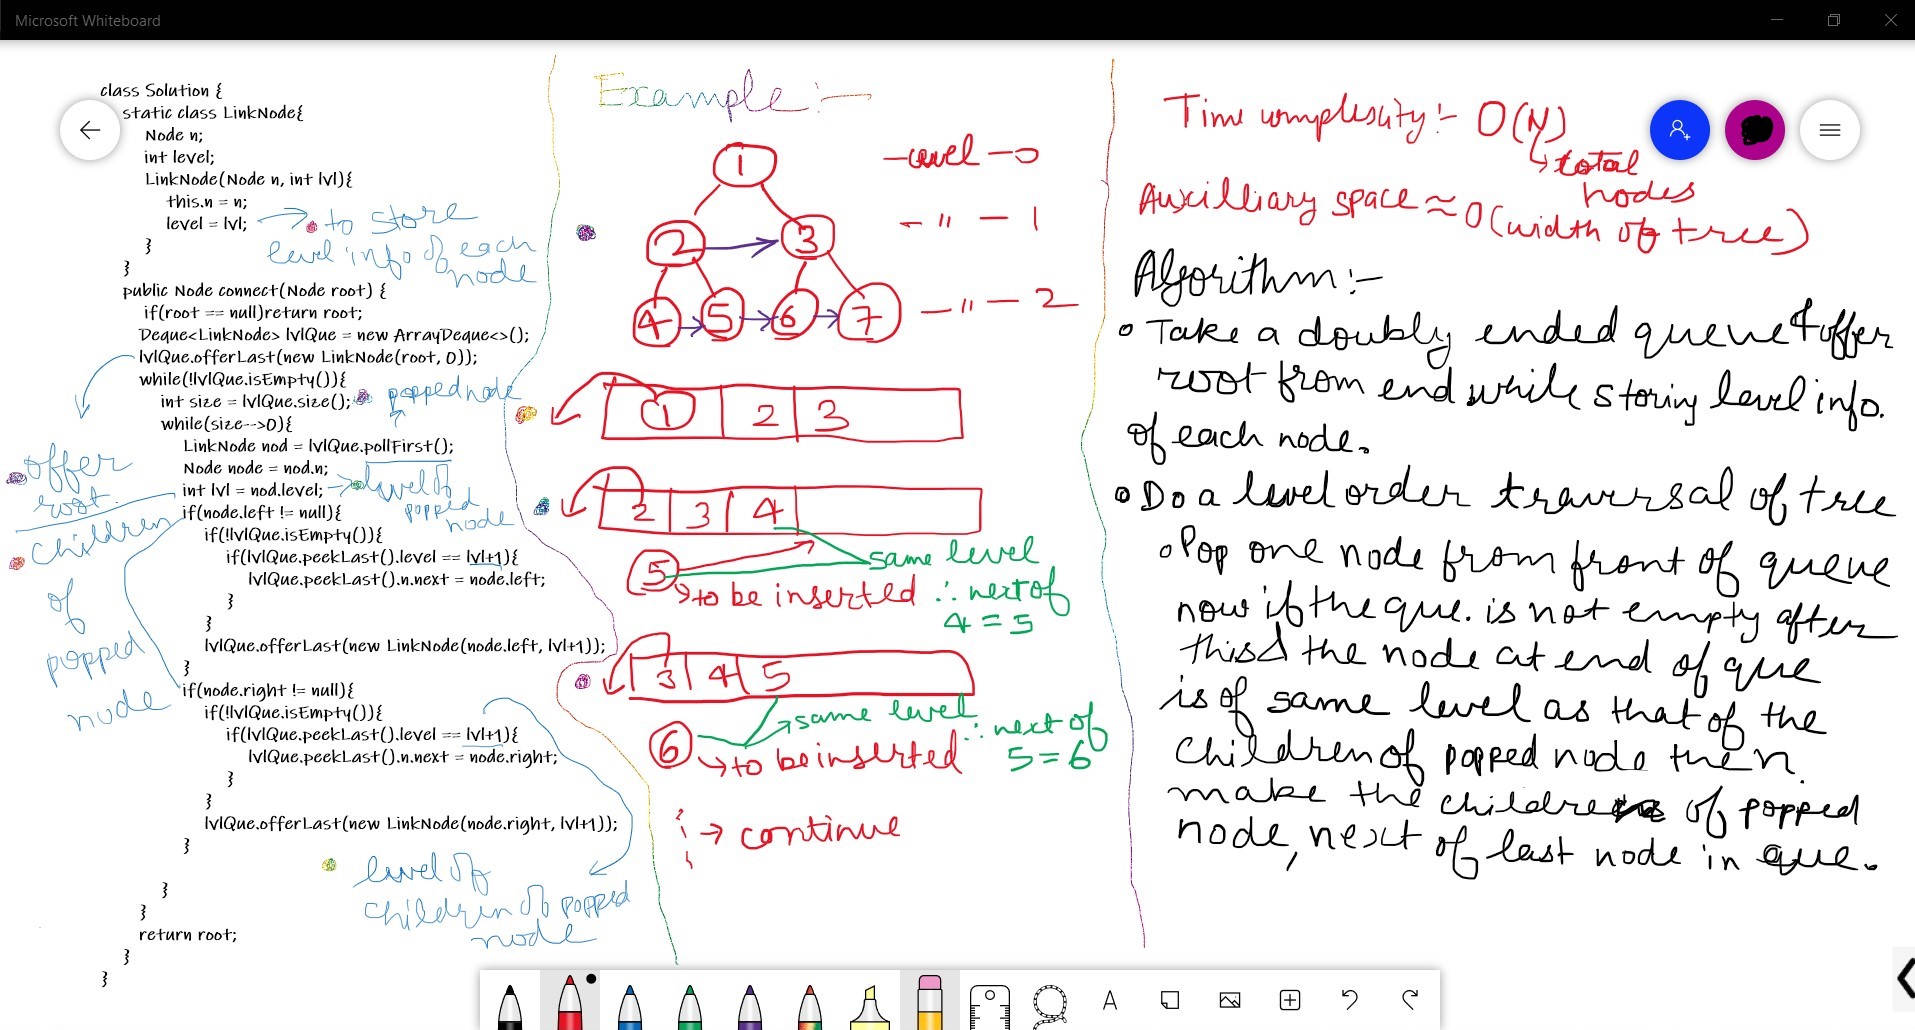 Microsoft Whiteboard
class Solution {
static class LinkNode{
Node n;
int level;
LinkNode(Node n, int lvl){
this.n = n;
level = lvl;
}
}
public Node connect(Node root) {
if(root == null)return root;
Deque<LinkNode> lvlQue = new ArrayDeque<>();
lvlQue.offerLast(new LinkNode(root, 0));
while(!lvlQue.isEmpty()){
int size = lvlQue.size();
while(size-->0){
LinkNode nod = lvlQue.pollFirst();
Node node = nod.n;
int lvl = nod.level;
if(node.left != null){
if(!lvlQue.isEmpty()){
if(lvlQue.peekLast().level == lvl+1){
lvlQue.peekLast().n.next = node.left;
}
}
lvlQue.offerLast(new LinkNode(node.left, lvl+1));
}
if(node.right != null){
if(!lvlQue.isEmpty()){
if(lvlQue.peekLast().level == lvl+1){
lvlQue.peekLast().n.next = node.right;
}
}
lvlQue.offerLast(new LinkNode(node.right, lvl+1));
}
}
}
return root;
}
}
to store
level info of each
node
popped node
level of
popped
node
offer
root
children
of
popped
node
level of
children of popped
node
Example :-
1
level - 0
2 3
- " - 1
4 5 6 7
- " - 2
1 2 3
2 3 4
5
same level
to be inserted ∴ next of
4 = 5
3 4 5
same level
∴ next of
6
to be inserted 5 = 6
→ continue
Time complexity :- O(N)
total
nodes
Auxilliary space ≈ O(width of tree)
Algorithm :-
Take a doubly ended queue & offer
root from end while storing level info.
of each node.
Do a level order traversal of tree
Pop one node from front of queue
now if the que. is not empty after
this & the node at end of que
is of same level as that of the
children of popped node then.
make the children of popped
node, next of last node in que.
A